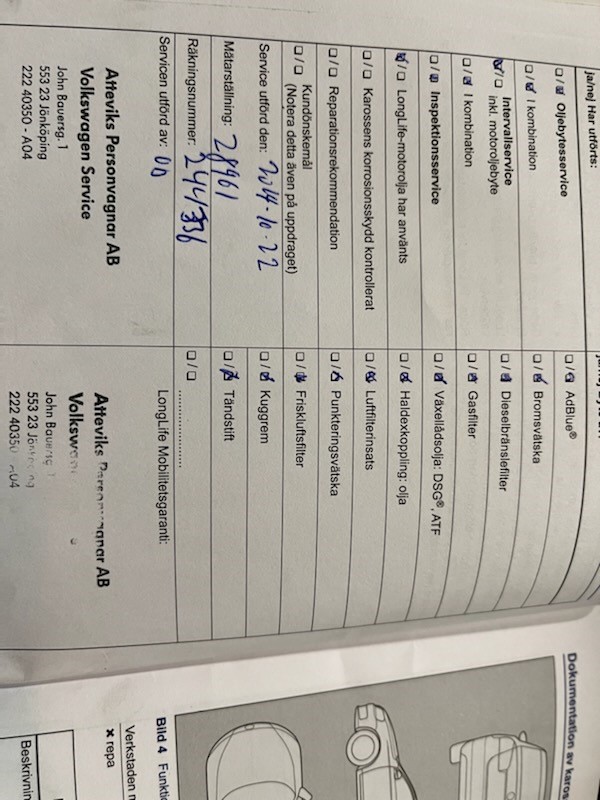 ja/nej Har utförts:
Oljebytesservice
I kombination
Intervallservice
inkl. motoroljebyte
I kombination
Inspektionsservice
LongLife-motorolja har använts
Karossens korrosionsskydd kontrollerat
Reparationsrekommendation
Kundönskemål
(Notera detta även på uppdraget)
Service utförd den: 2014-10-22
Mätarställning: 28961
Räkningsnummer:
Servicen utförd av:
Atteviks Personvagnar AB
Volkswagen Service
John Bauersg. 1
553 23 Jönköping
222 40350 - A04
AdBlue®
Bromsvätska
Dieselbränslefilter
Gasfilter
Växellådsolja: DSG®, ATF
Haldexkoppling: olja
Luftfilterinsats
Punkteringsvätska
Friskluftsfilter
Kuggrem
Tändstift
LongLife Mobilitetsgaranti:
Atteviks Personvagnar AB
John
553 23
222
Dokumentation av
Bild 4
Verkstaden
× repa